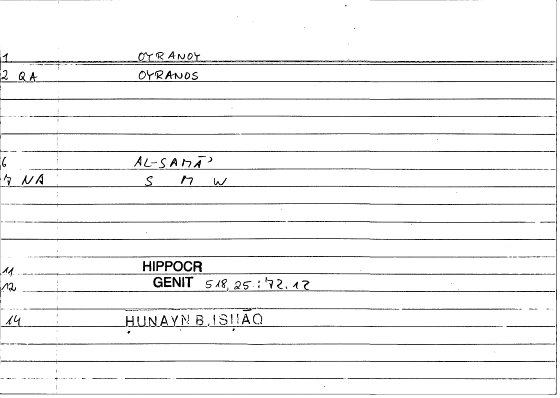 1 OYRANOY
2 QA OYRANOS
6 AL-SAMĀʾ
7 NA S M W
11 HIPPOCR
12 GENIT 518,25 : 72.12
14 ḤUNAYN B. ISḤĀQ